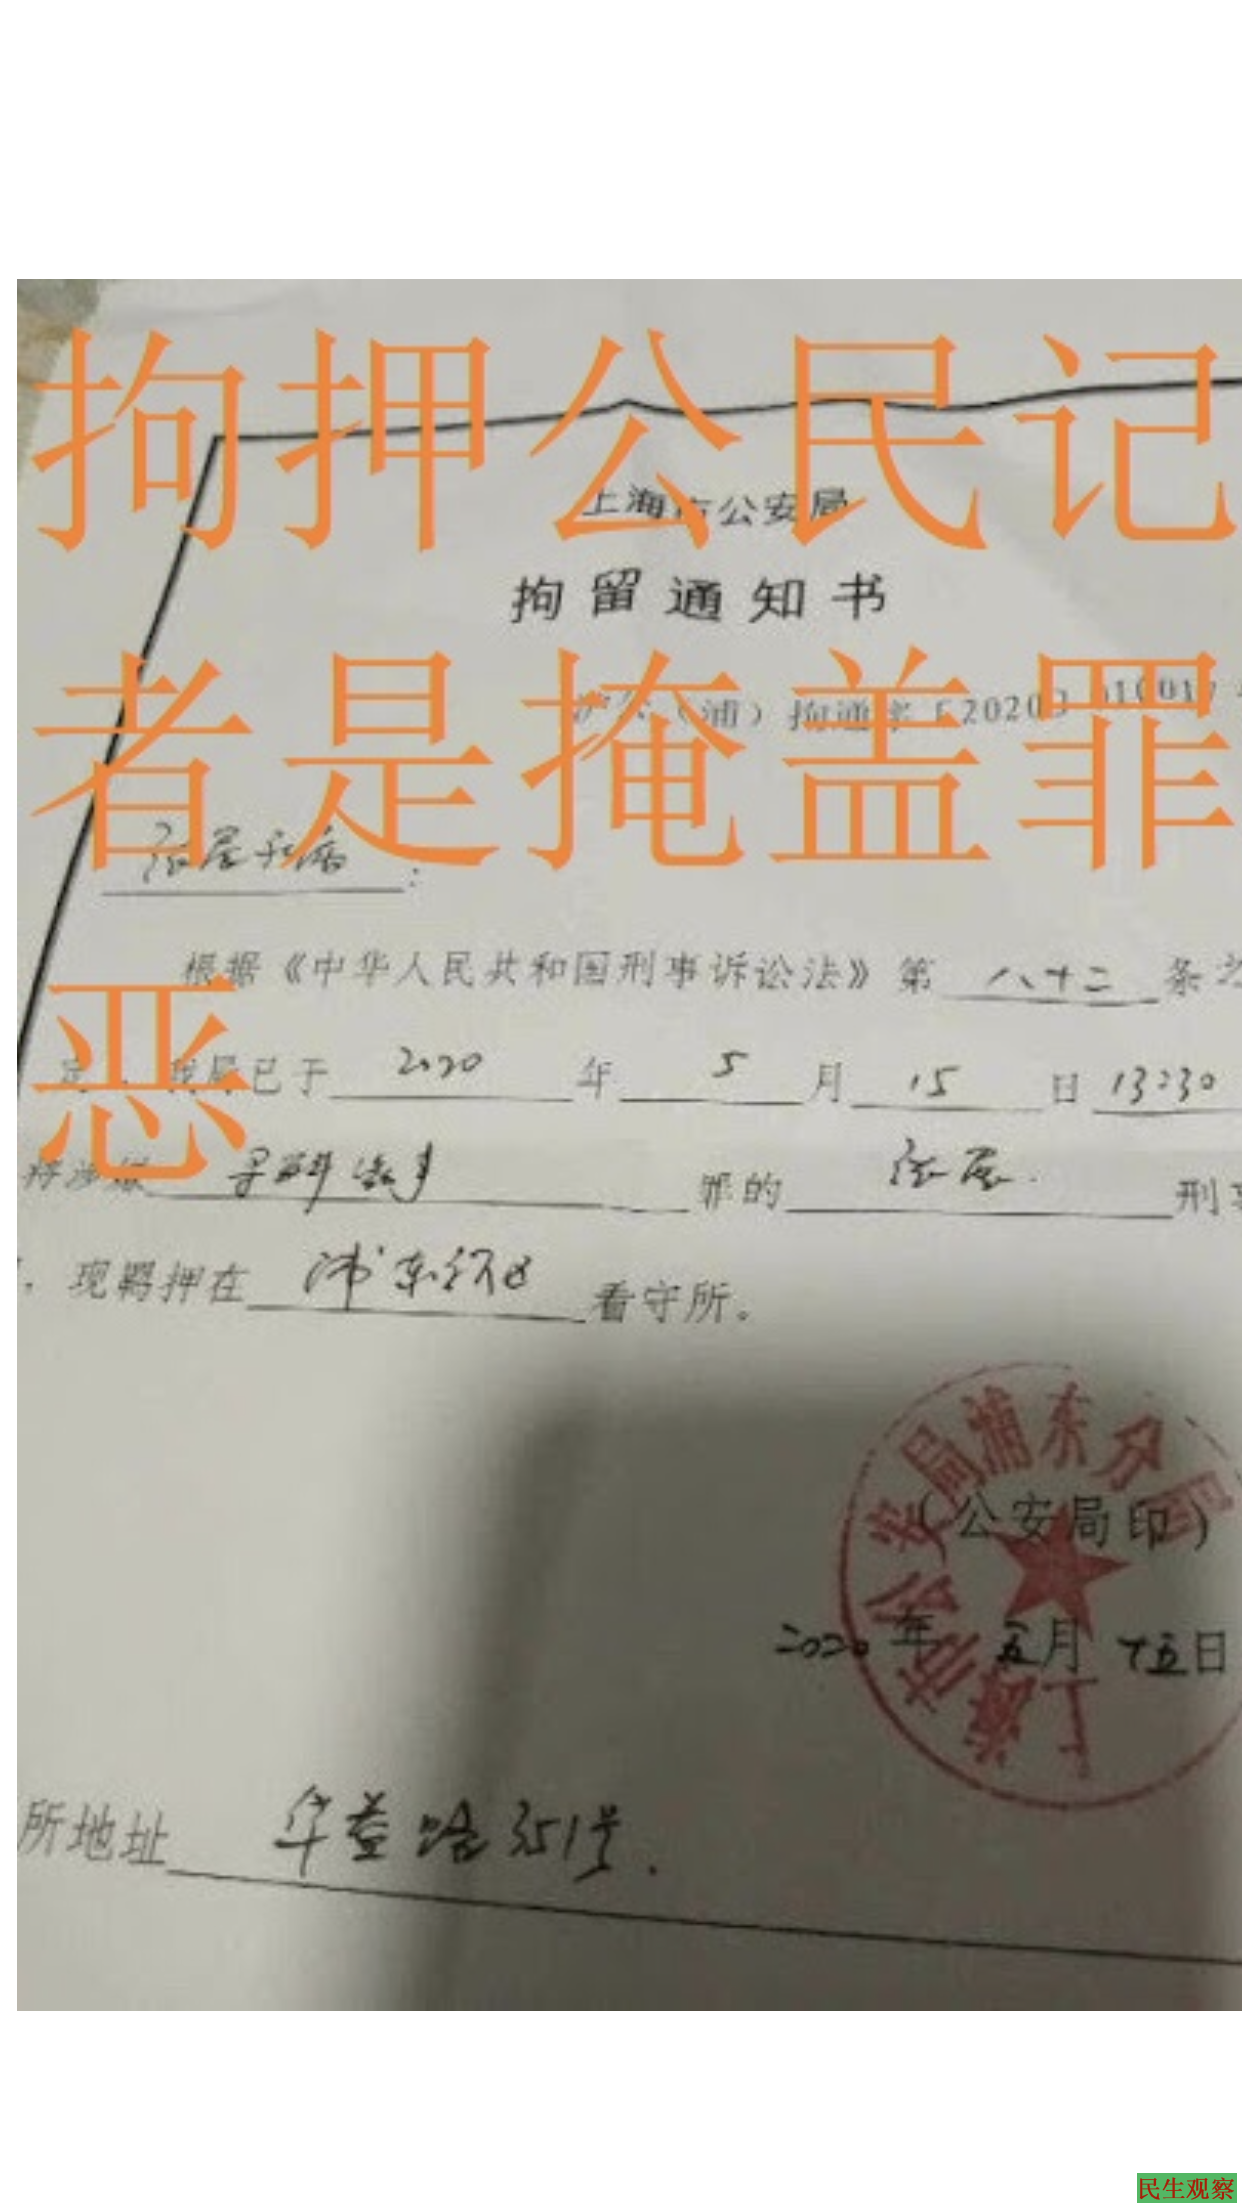 拘押公民记
者是掩盖罪
恶
上海市公安局
拘留通知书
沪公（浦）拘通字〔2020〕
张展家属：
根据《中华人民共和国刑事诉讼法》第八十二条之
定，我局已于2020年5月15日13:30
将涉嫌寻衅滋事罪的张展刑事
，现羁押在浦东新区看守所。
上海市公安局浦东分局
（公安局印）
2020年五月十五日
所地址华益路351号.
民生观察